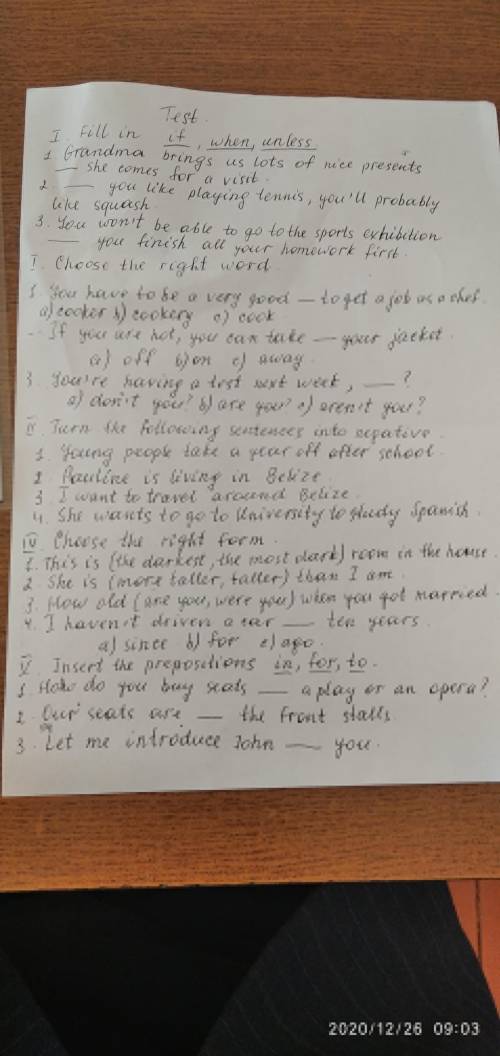 Test.
I. Fill in if, when, unless
1. Grandma brings us lots of nice presents
__ she comes for a visit.
2. __ you like playing tennis, you'll probably
like squash.
3. You won't be able to go to the sports exhibition
__ you finish all your homework first.
I. Choose the right word.
1. You have to be a very good — to get a job as a chef.
a) cooker b) cookery c) cook
If you are hot, you can take — your jacket.
a) off b) on c) away
3. You're having a test next week, __?
a) don't you? b) are you? c) aren't you?
Turn the following sentences into negative.
1. Young people take a year off after school.
2. Pauline is living in Belize.
3. I want to travel around Belize.
4. She wants to go to University to study Spanish.
IV. Choose the right form.
1. This is (the darkest, the most dark) room in the house.
2. She is (more taller, taller) than I am.
3. How old (are you, were you) when you got married.
4. I haven't driven a car __ ten years.
a) since b) for c) ago.
V. Insert the prepositions in, for, to.
1. How do you buy seats __ a play or an opera?
2. Our seats are __ the front stalls.
3. Let me introduce John __ you.
2020/12/26 09:03